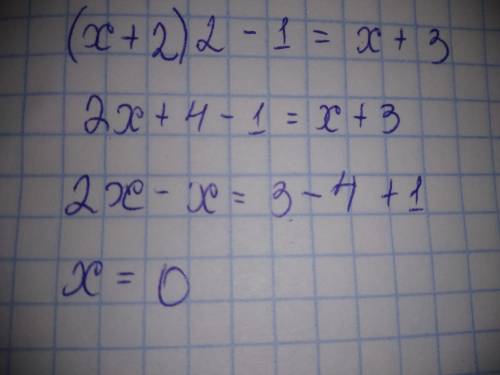 (x + 2) 2 - 1 = x + 3
2x + 4 - 1 = x + 3
2x - x = 3 - 4 + 1
x = 0